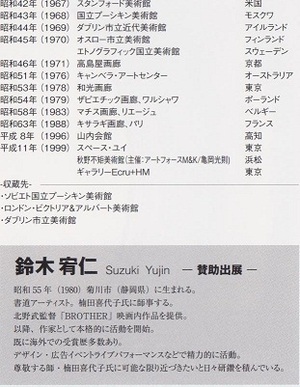 昭和42年（1967） スタンフォード美術館 米国
昭和43年（1968） 国立プーシキン美術館 モスクワ
昭和44年（1969） ダブリン市立近代美術館 アイルランド
昭和45年（1970） オスロー市立美術館 フィンランド
エトノグラフィック国立美術館 スウェーデン
昭和46年（1971） 高島屋画廊 京都
昭和51年（1976） キャンベラ・アートセンター オーストラリア
昭和53年（1978） 和光画廊 東京
昭和54年（1979） ザピエチック画廊、ワルシャワ ポーランド
昭和58年（1983） マチス画廊、リエージュ ベルギー
昭和63年（1988） キサラギ画廊、パリ フランス
平成 8年（1996） 山内会館 高知
平成11年（1999） スペース・ユイ 東京
秋野不矩美術館（主催：アートフォームM&K/亀岡光則） 浜松
ギャラリーEcru+HM 東京
-収蔵先-
・ソビエト国立プーシキン美術館
・ロンドン・ビクトリア&アルバート美術館
・ダブリン市立美術館
鈴木 宥仁 Suzuki Yujin ― 賛助出展 ―
昭和55年（1980）菊川市（静岡県）に生まれる。
書道アーティスト。楠田喜代子氏に師事する。
北野武監督「BROTHER」映画内作品を提供。
以降、作家として本格的に活動を開始。
既に海外での受賞歴多数あり。
デザイン・広告イベントライブパフォーマンスなどで精力的に活動。
尊敬する師・楠田喜代子氏に可能な限り近づきたいと日々研鑽を積んでいる。